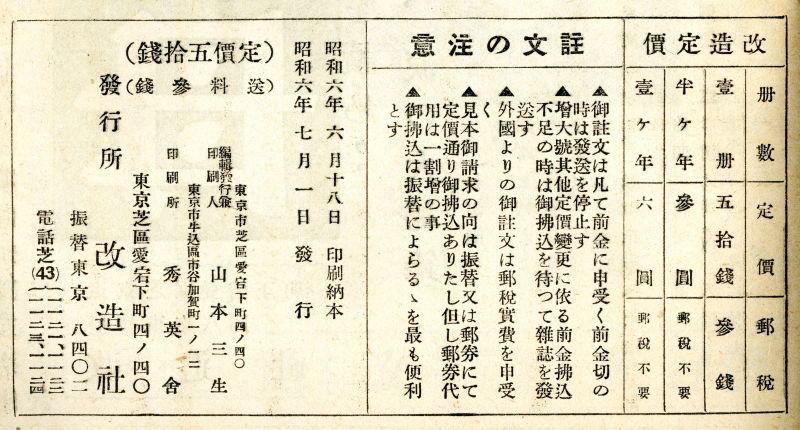 改造定價
冊數 定價 郵稅
壹冊 五拾錢 參錢
半ケ年 參圓 郵稅不要
壹ケ年 六圓 郵稅不要
註文の注意
▲御註文は凡て前金に申受く前金切の
時は發送を停止す
▲增大號其他定價變更に依る前金拂込
不足の時は御拂込を待つて雜誌を發
送す
▲外國よりの御註文は郵稅實費を申受
く
▲見本御請求の向は振替又は郵券にて
定價通り御拂込ありたし但し郵券代
用は一割增の事
▲御拂込は振替によらるゝを最も便利
とす
昭和六年六月十八日 印刷納本
昭和六年七月一日發行
(定價五拾錢)
(送料參錢)
東京市芝區愛宕下町四ノ四〇
編輯發行兼
印刷人 山本三生
東京市牛込區市谷加賀町一ノ一二
印刷所 秀英舍
東京芝區愛宕下町四ノ四〇
發行所 改造社
振替東京 八四〇二
電話芝(43)